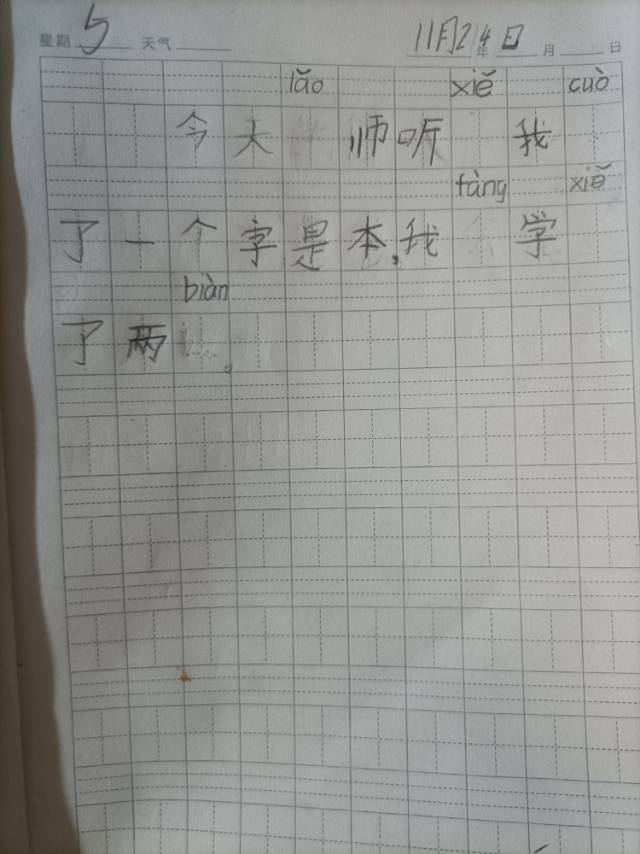 星期 5 天气 11月24日 年 月 日
lǎo xiě cuò
今天 师听 我
fàng xiě
了一个字是本,我 学
biàn
了两 。